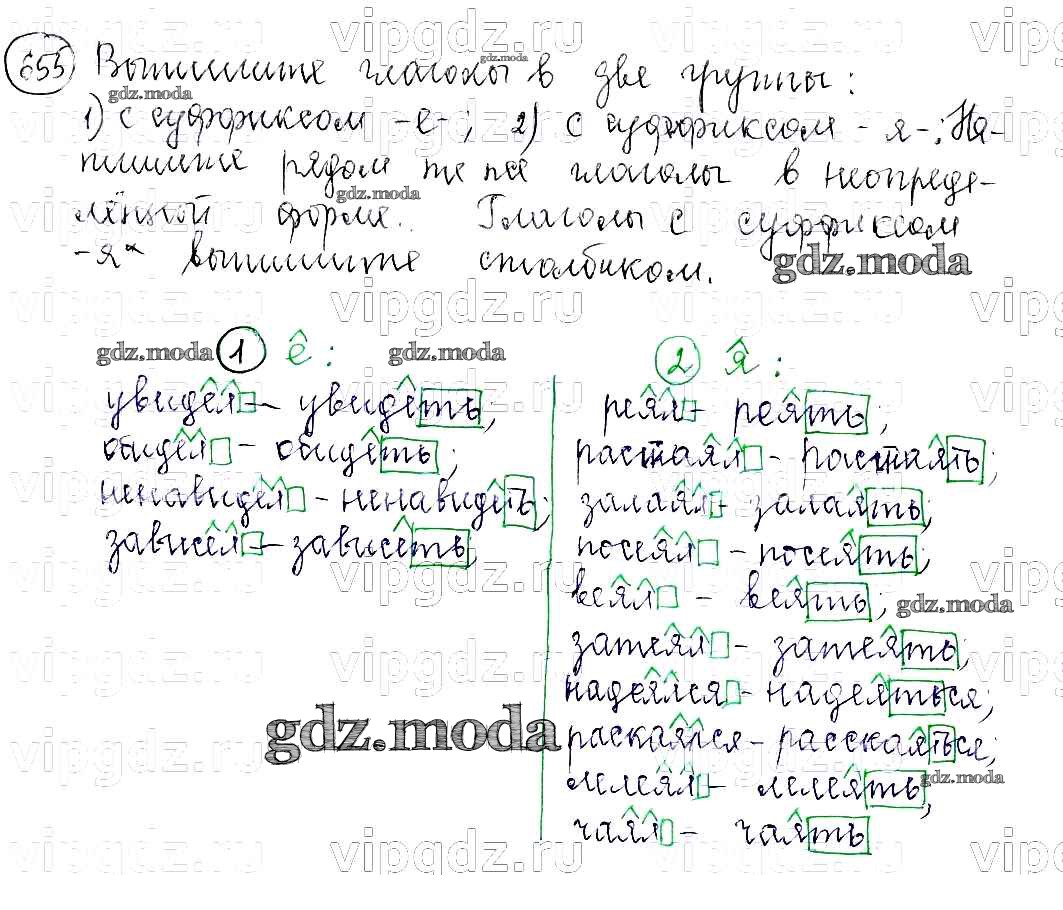 655 Выпишите глаголы в две группы:
1) с суффиксом -е-; 2) с суффиксом -я-. На-
пишите рядом те же глаголы в неопреде-
лённой форме. Глаголы с суффиксом
-я- выпишите столбиком.
gdz.moda
1 е:
увидел - увидеть;
обидел - обидеть;
ненавидел - ненавидеть;
зависел - зависеть;
2 я:
реял - реять;
растаял - растаять;
залаял - залаять;
посеял - посеять;
веял - веять;
затеял - затеять;
надеялся - надеяться;
раскаялся - расскаяться;
лелеял - лелеять;
чаял - чаять
gdz.moda
vipgdz.ru